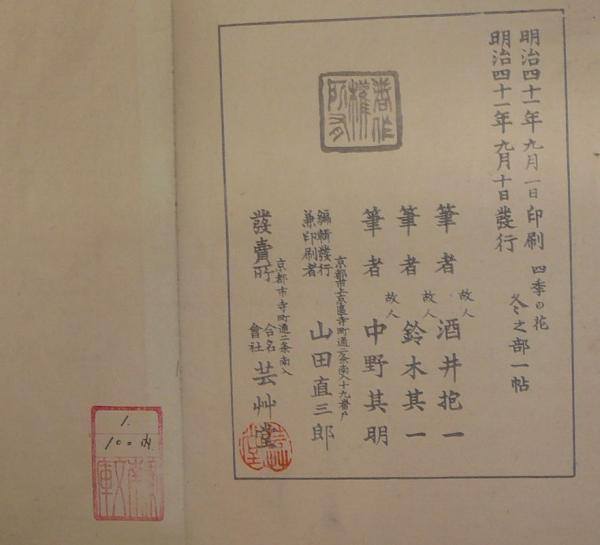 明治四十一年九月一日印刷
明治四十一年九月十日發行
四季の花
冬之部一帖
著作權所有
筆者 故人 酒井抱一
筆者 故人 鈴木其一
筆者 故人 中野其明
京都市上京區寺町通二条南入十九番戶
編輯發行兼印刷者 山田直三郎
京都市寺町通二条南入
發賣所 合名會社 芸艸堂
芸艸堂